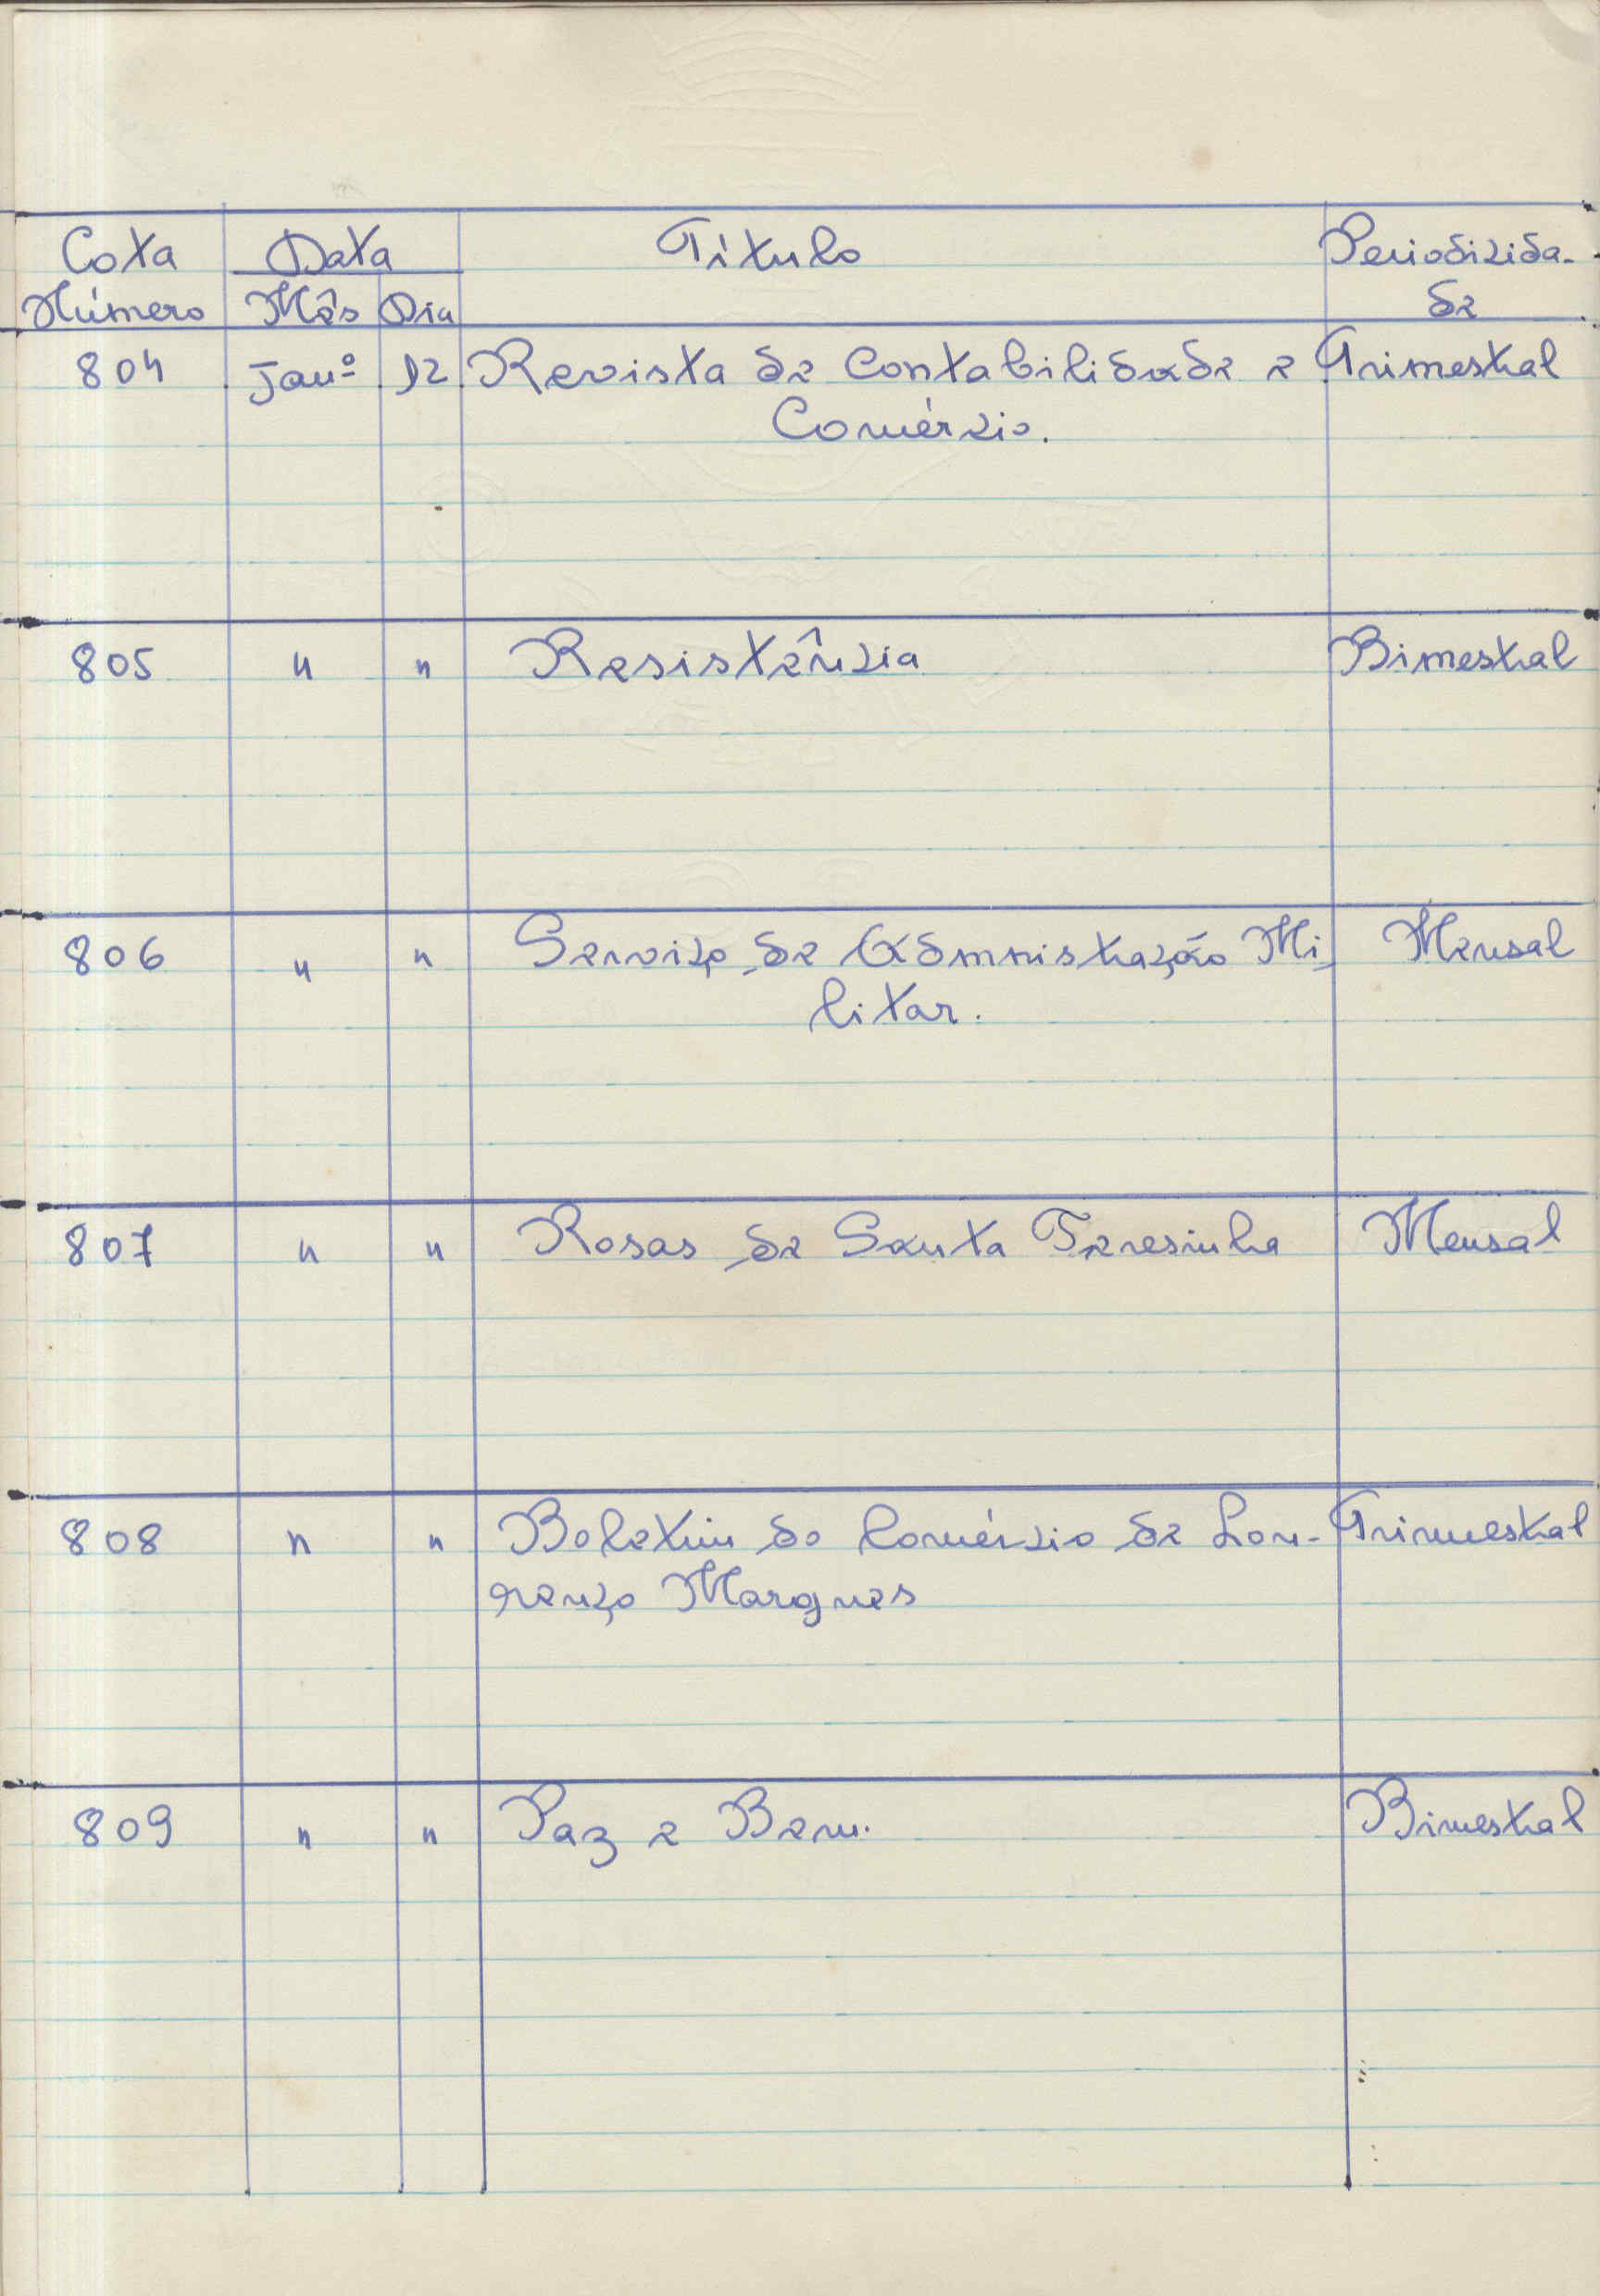 Cota Data Título Periodicida-
Número Mês Dia de
804 Janº 12 Revista de Contabilidade e Trimestral
Comércio.
805 " " Resistência Bimestral
806 " " Serviço de Admnistração Mi Mensal
litar.
807 " " Rosas de Santa Teresinha Mensal
808 " " Boletim do Comércio de Lou- Trimestral
renço Marques
809 " " Paz e Bem. Bimestral